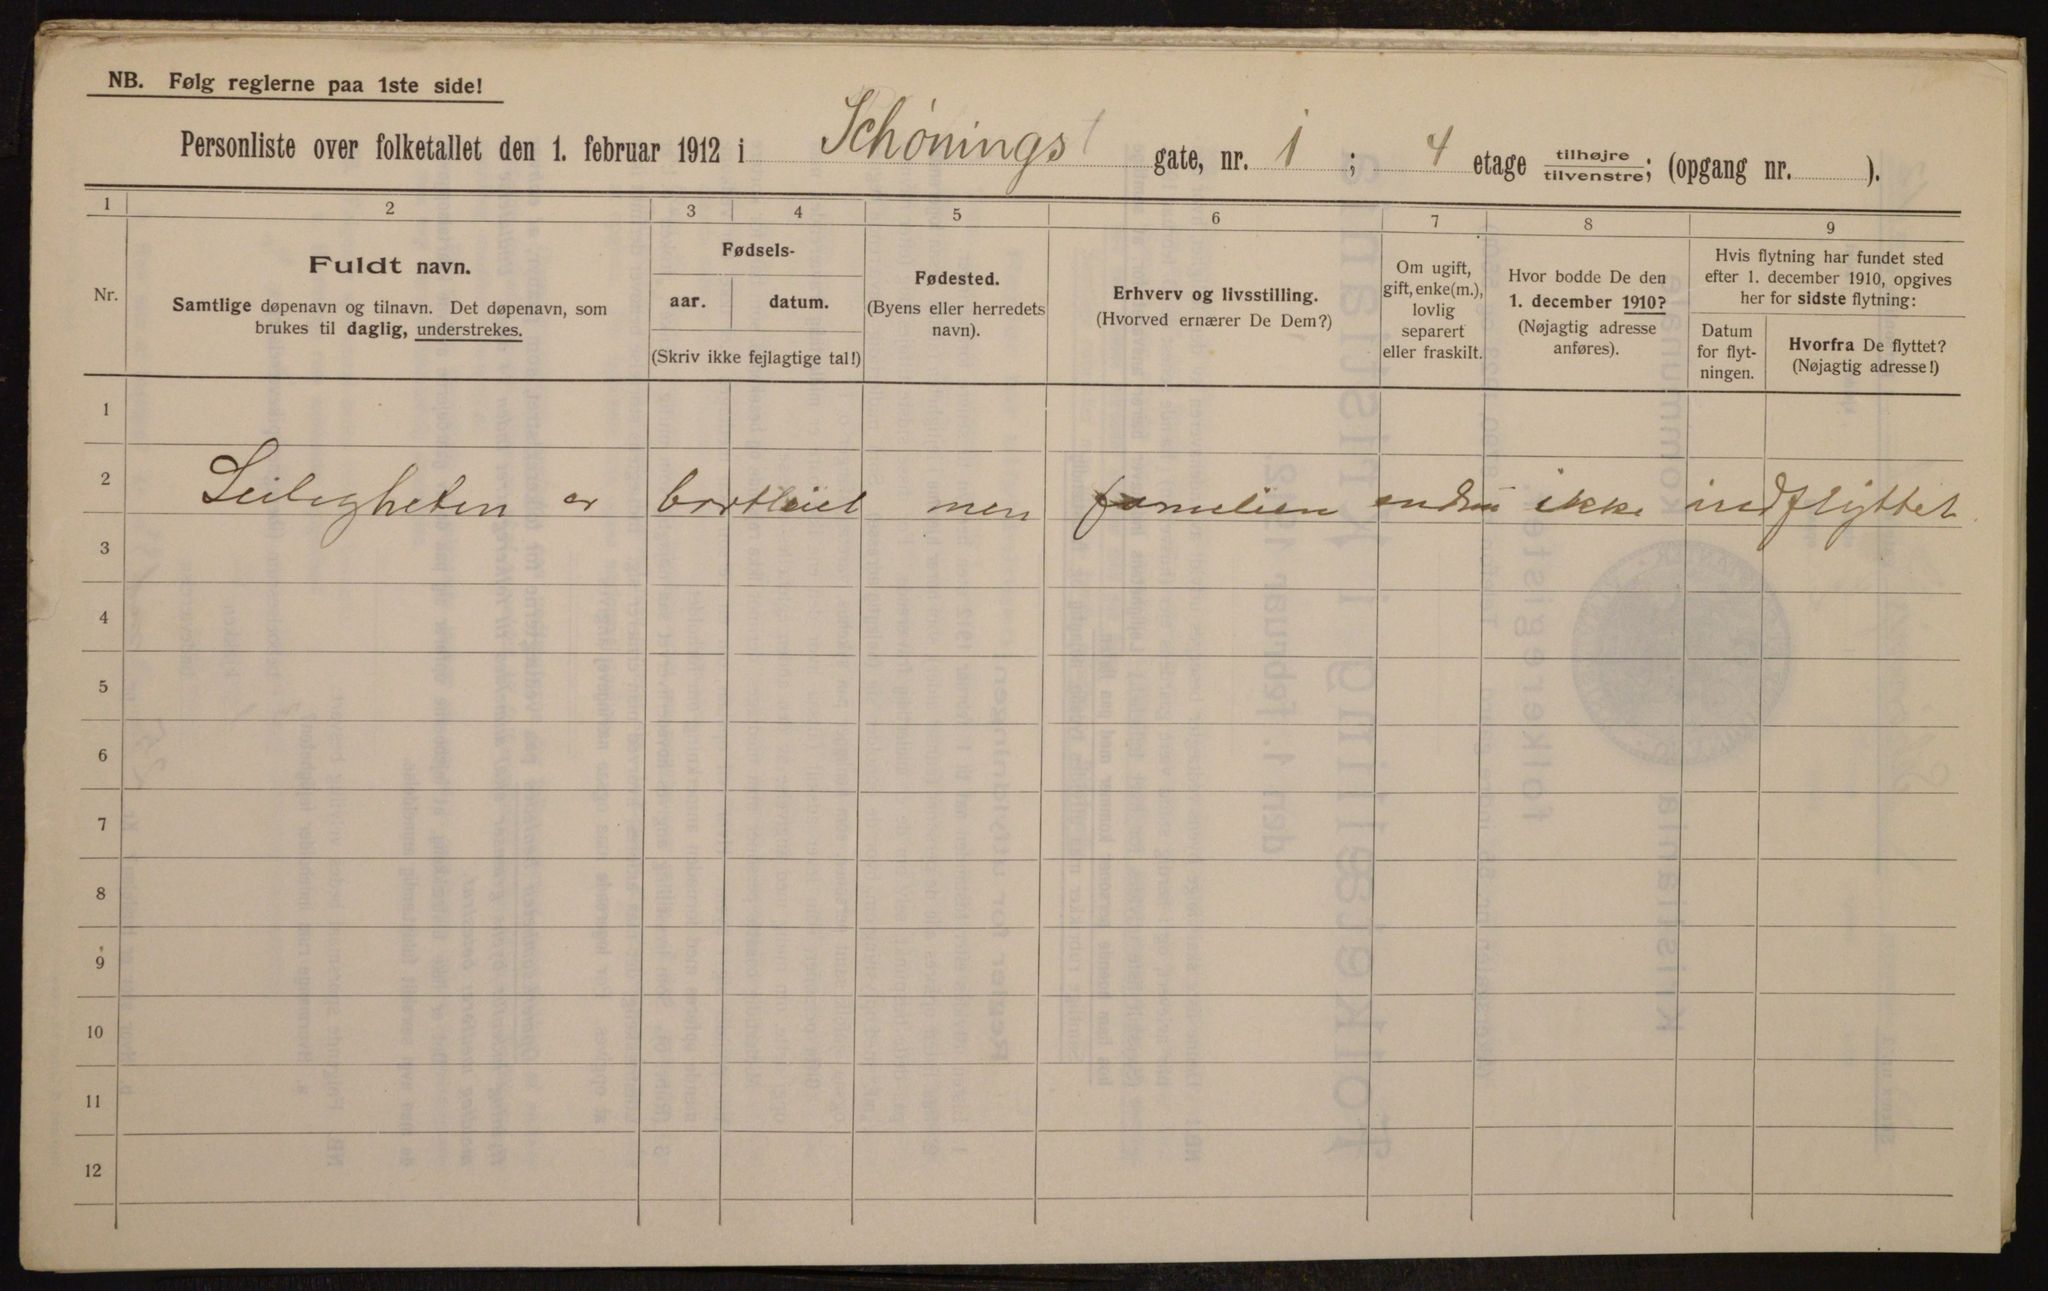 NB. Følg reglerne paa 1ste side!
Personliste over folketallet den 1. februar 1912 i Schønings gate, nr. 1 ; 4 etage tilhøjre/tilvenstre; (opgang nr. ).
1 2 3 4 5 6 7 8 9
Nr.
Fuldt navn.
Samtlige døpenavn og tilnavn. Det døpenavn, som
brukes til daglig, understrekes.
Fødsels-
aar. datum.
(Skriv ikke fejlagtige tal!)
Fødested.
(Byens eller herredets
navn).
Erhverv og livsstilling.
(Hvorved ernærer De Dem?)
Om ugift,
gift, enke(m.),
lovlig
separert
eller fraskilt.
Hvor bodde De den
1. december 1910?
(Nøjagtig adresse
anføres).
Hvis flytning har fundet sted
efter 1. december 1910, opgives
her for sidste flytning:
Datum
for flyt-
ningen.
Hvorfra De flyttet?
(Nøjagtig adresse!)
1
2 Leiligheten er bortleiet men familien endnu ikke indflyttet
3
4
5
6
7
8
9
10
11
12